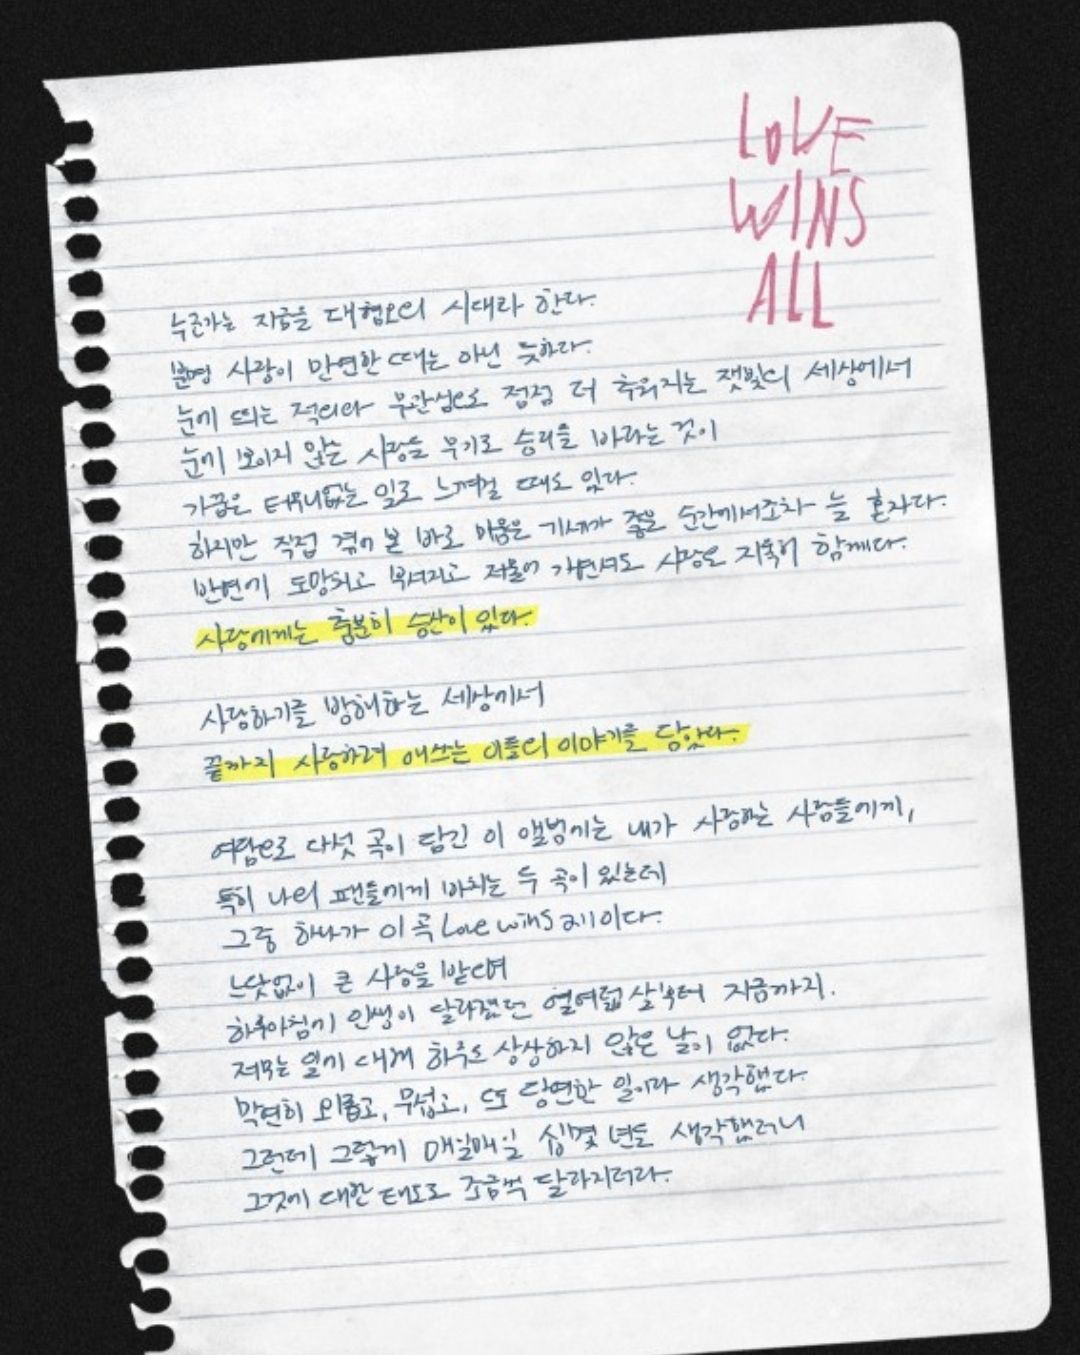 LOVE
WINS
ALL
누군가는 지금을 대혐오의 시대라 한다.
분명 사랑이 만연한 때는 아닌 듯하다.
눈에 띄는 적의와 무관심으로 점점 더 추워지는 잿빛의 세상에서
눈에 보이지 않는 사랑을 무기로 승리를 바라는 것이
가끔은 터무니없는 일로 느껴질 때도 있다.
하지만 직접 겪어 본 바로 미움은 기세가 좋은 순간에서조차 늘 혼자다.
반면에 도망치고 부서지고 저물어 가면서도 사랑은 지독히 함께다.
사랑에게는 충분히 승산이 있다.
사랑하기를 방해하는 세상에서
끝까지 사랑하려 애쓰는 이들의 이야기를 담았다.
여담으로 다섯 곡이 담긴 이 앨범에는 내가 사랑하는 사람들에게,
특히 나의 팬들에게 바치는 두 곡이 있는데
그중 하나가 이 곡 Love wins all이다.
느닷없이 큰 사랑을 받으며
하루아침에 인생이 달라졌던 열여덟 살부터 지금까지.
저무는 일에 대해 하루도 상상하지 않은 날이 없다.
막연히 외롭고, 무섭고, 또 당연한 일이라 생각했다
그런데 그렇게 매일매일 십몇 년을 생각했더니
그것에 대한 태도도 조금씩 달라지더라.